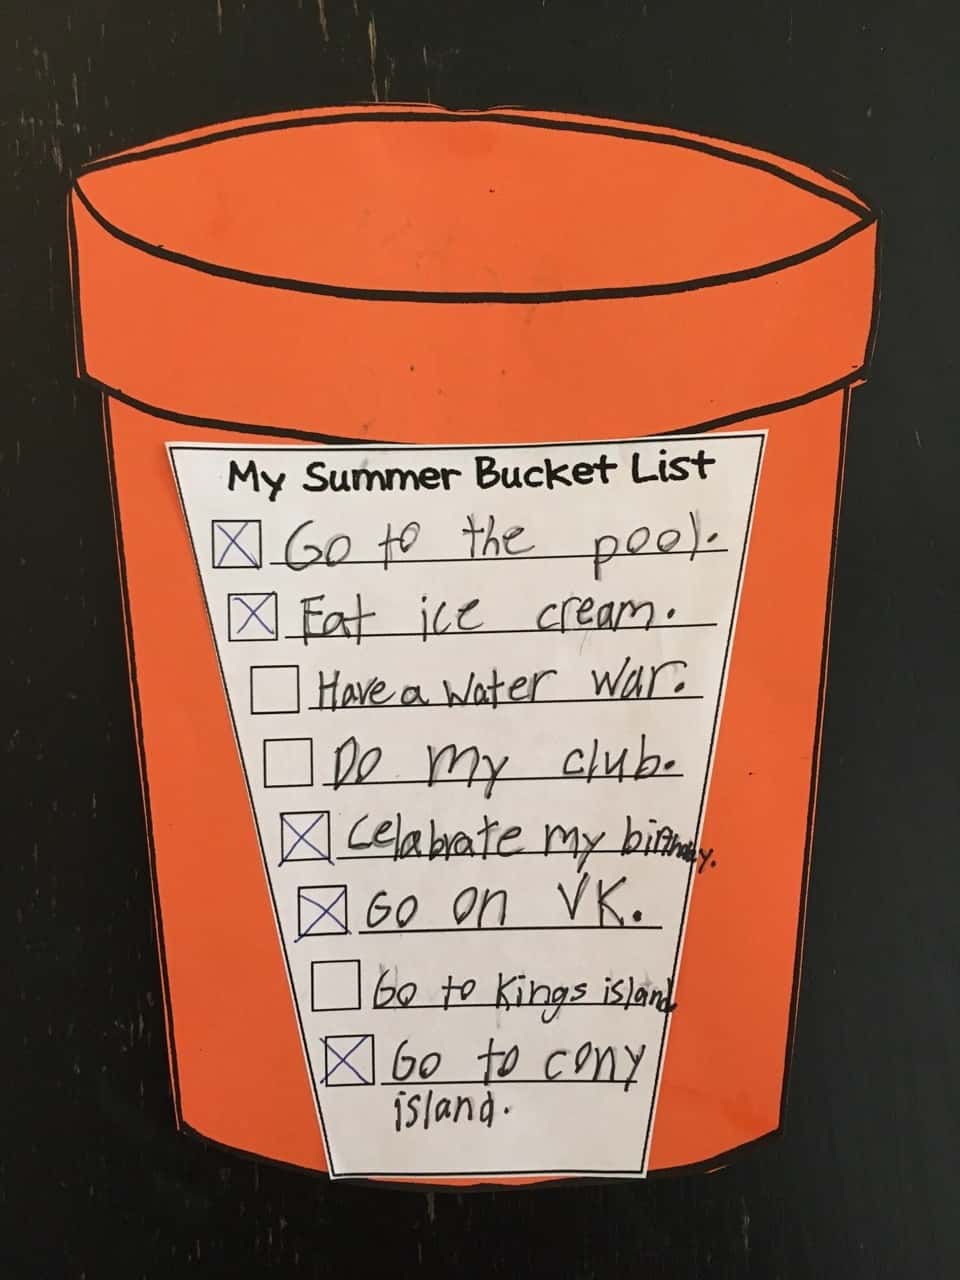 My Summer Bucket List
Go to the pool.
Eat ice cream.
Have a water war.
Do my club.
Celabrate my birthday.
Go on VK.
Go to Kings island
Go to cony
island.